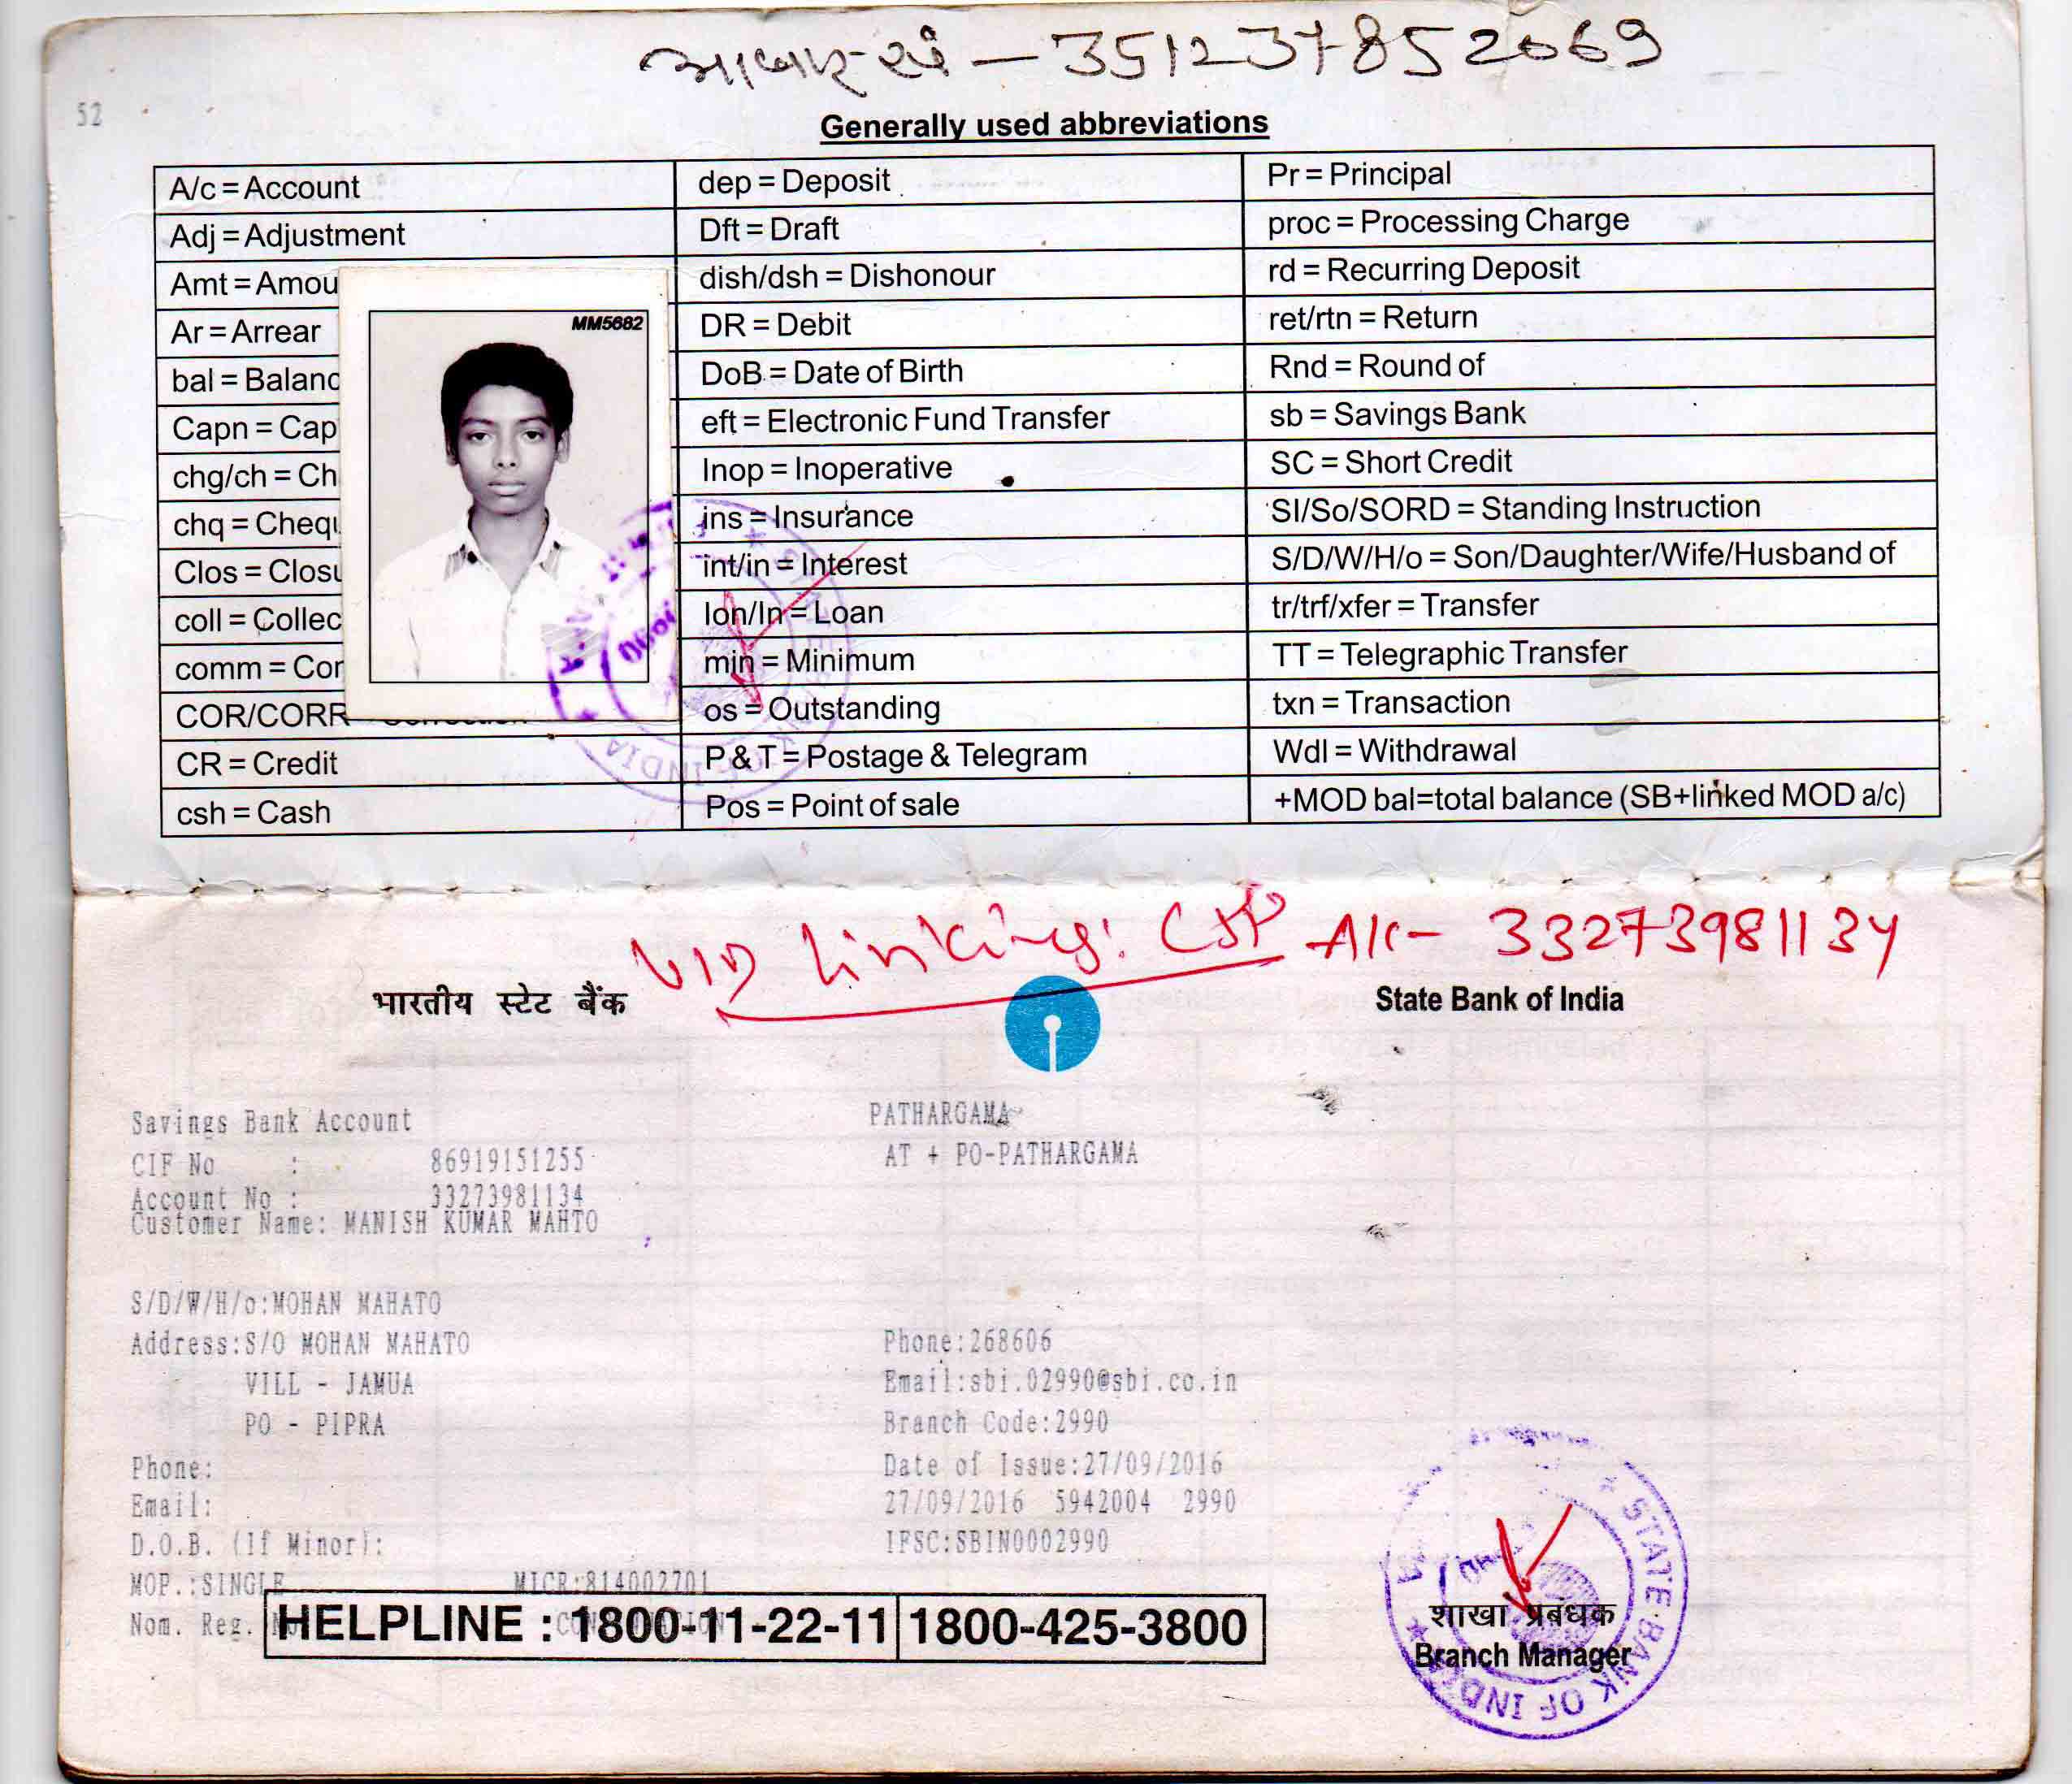 आधार सं - 351237852069
52
Generally used abbreviations
A/c = Account
Adj = Adjustment
Amt = Amou
Ar = Arrear
bal = Balanc
Capn = Cap
chg/ch = Ch
chq = Chequ
Clos = Closu
coll = Collec
comm = Cor
COR/CORR
CR = Credit
csh = Cash
MM5682
dep = Deposit
Dft = Draft
dish/dsh = Dishonour
DR = Debit
DoB = Date of Birth
eft = Electronic Fund Transfer
Inop = Inoperative
ins = Insurance
int/in = Interest
lon/ln = Loan
min = Minimum
os = Outstanding
P & T = Postage & Telegram
Pos = Point of sale
Pr = Principal
proc = Processing Charge
rd = Recurring Deposit
ret/rtn = Return
Rnd = Round of
sb = Savings Bank
SC = Short Credit
SI/So/SORD = Standing Instruction
S/D/W/H/o = Son/Daughter/Wife/Husband of
tr/trf/xfer = Transfer
TT = Telegraphic Transfer
txn = Transaction
Wdl = Withdrawal
+MOD bal=total balance (SB+linked MOD a/c)
STATE BANK OF INDIA
UID Linking: CSP A/c- 33273981134
भारतीय स्टेट बैंक
State Bank of India
Savings Bank Account
CIF No : 86919151255
Account No : 33273981134
Customer Name: MANISH KUMAR MAHTO
S/D/W/H/o:MOHAN MAHATO
Address:S/O MOHAN MAHATO
VILL - JAMUA
PO - PIPRA
Phone:
Email:
D.O.B. (If Minor):
MOP.:SINGLE MICR:814002701
Nom. Reg.
PATHARGAMA
AT + PO-PATHARGAMA
Phone:268606
Email:sbi.02990@sbi.co.in
Branch Code:2990
Date of Issue:27/09/2016
27/09/2016 5942004 2990
IFSC:SBIN0002990
HELPLINE : 1800-11-22-11 1800-425-3800
शाखा प्रबंधक
Branch Manager
STATE BANK OF INDIA